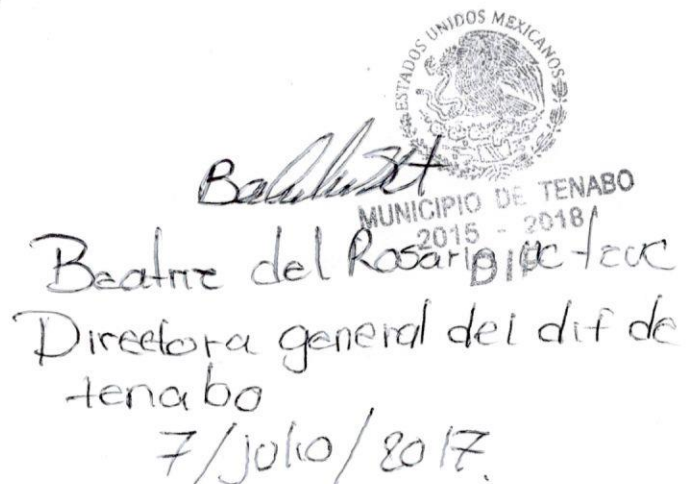 ESTADOS UNIDOS MEXICANOS
MUNICIPIO DE TENABO
2015 - 2018
DIF
Beatriz del Rosario
Directora general del dif de
tenabo
7/julio/2017.